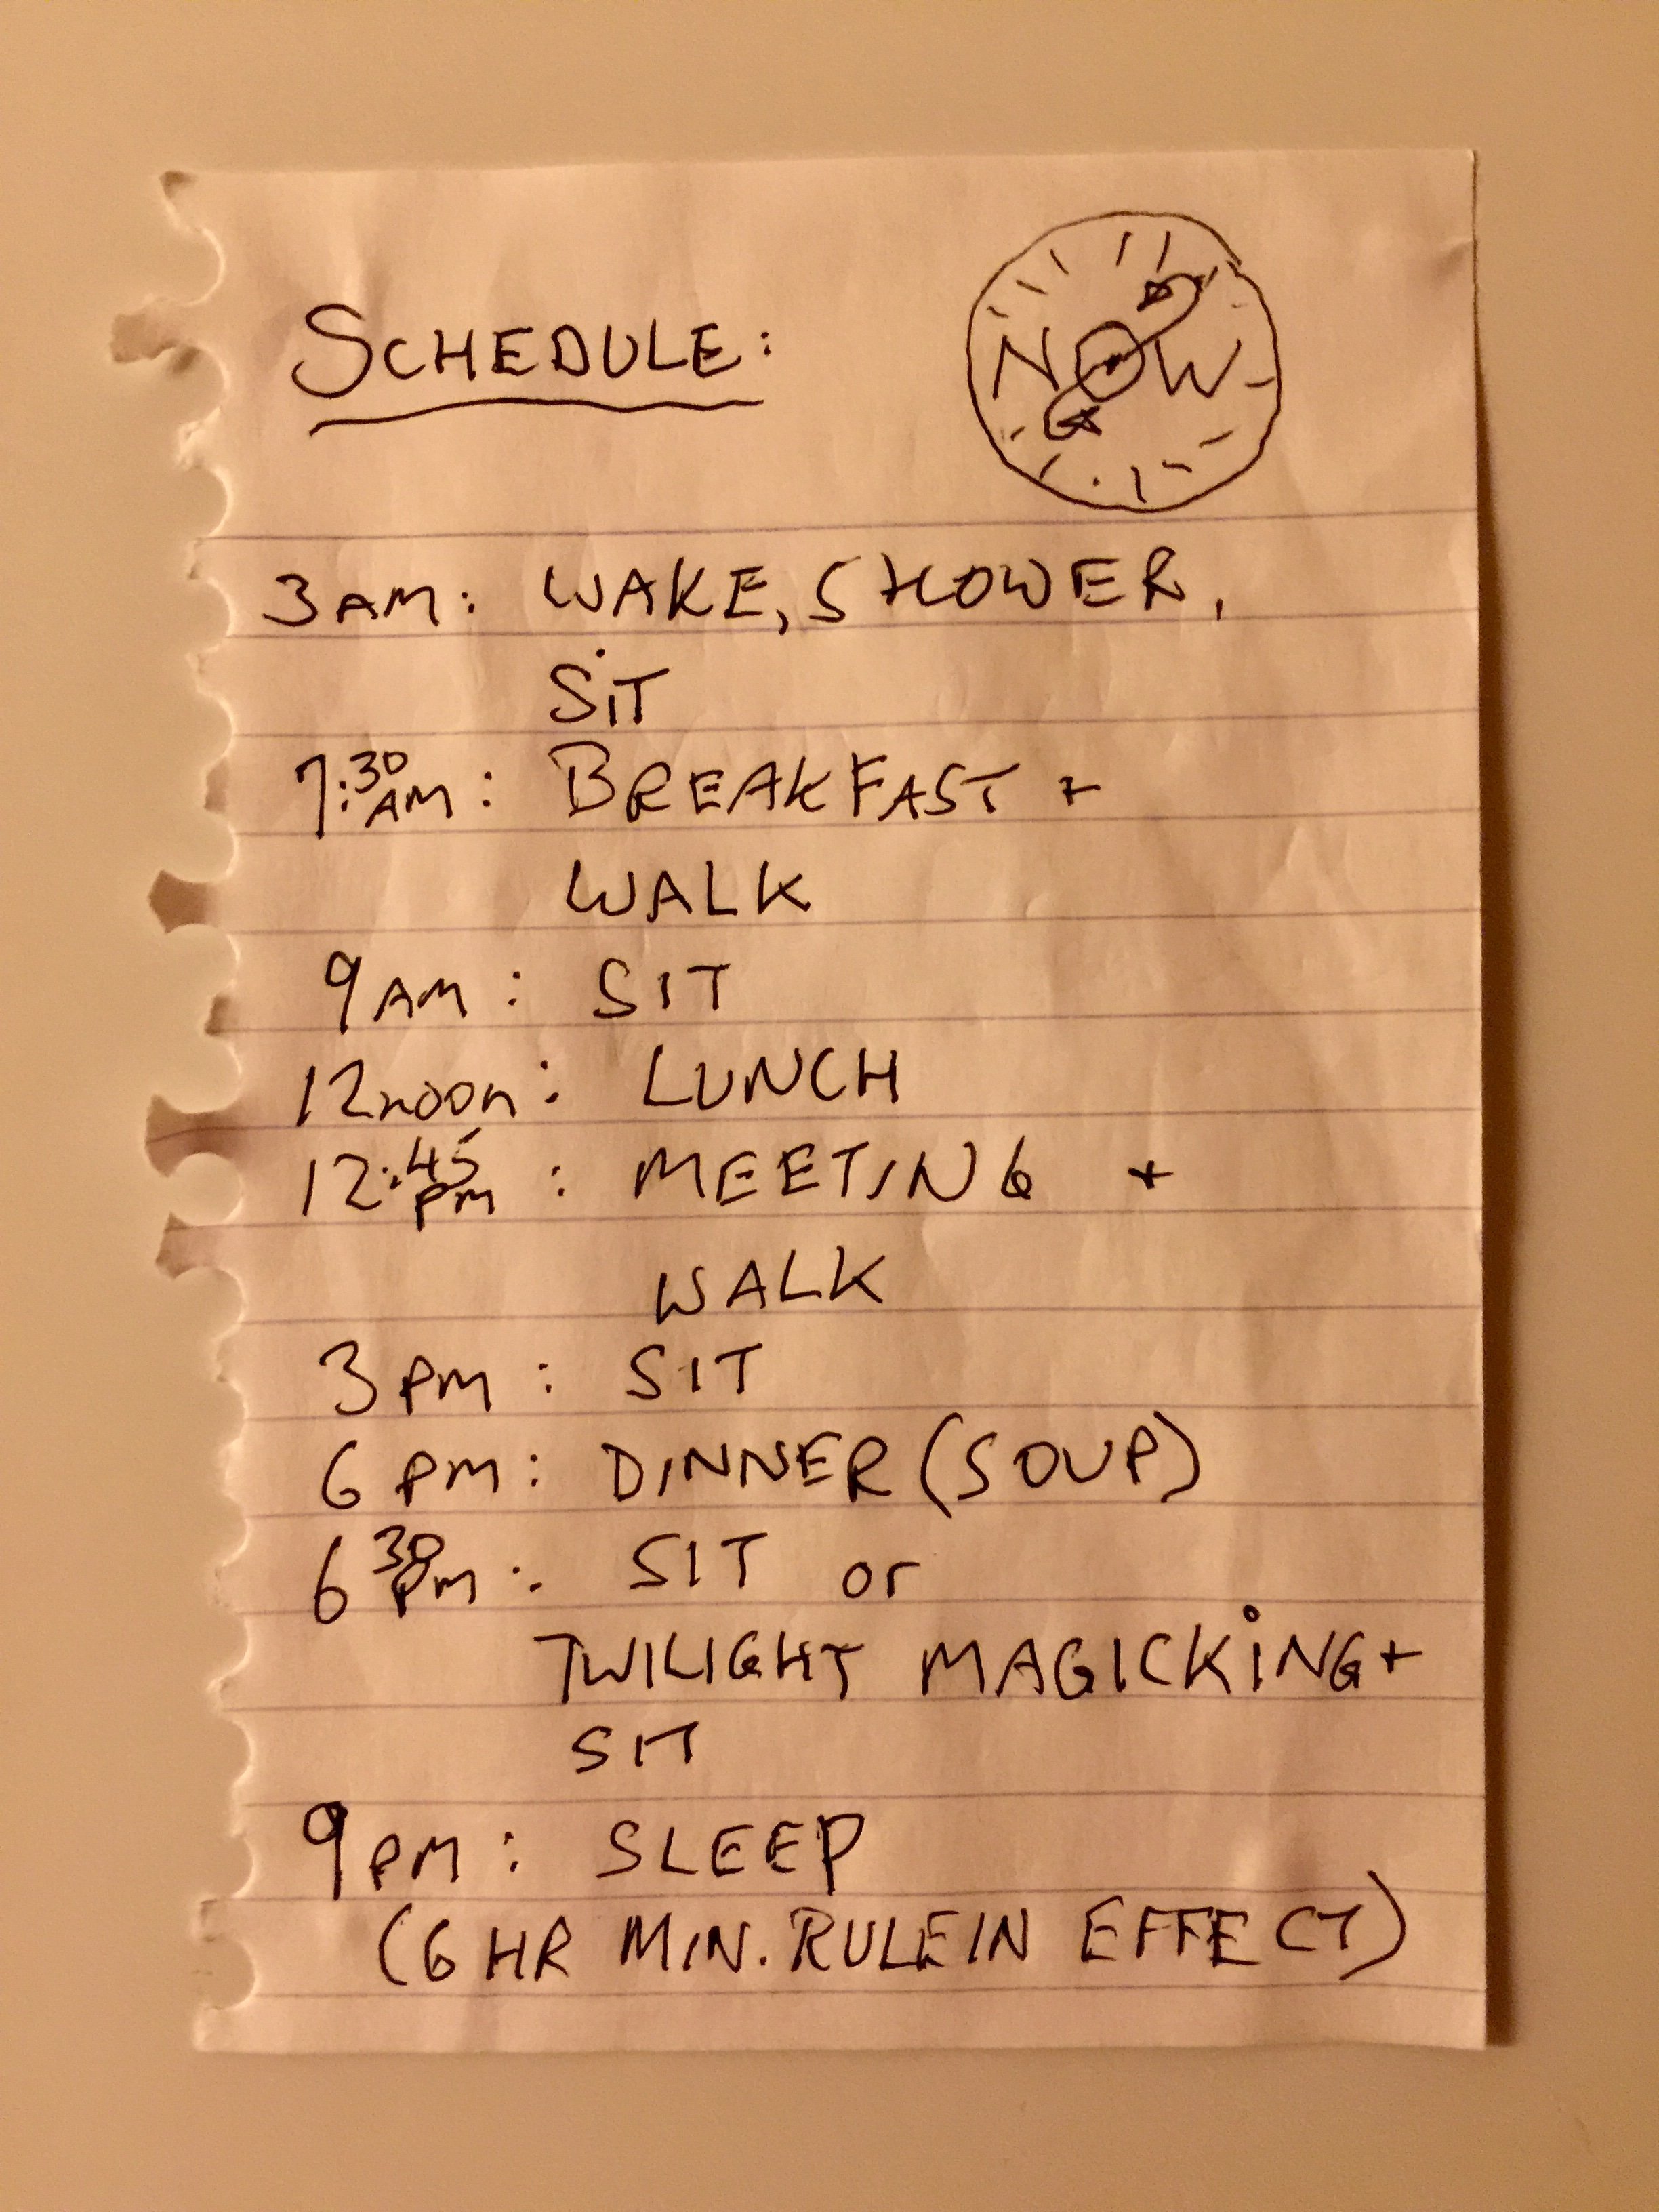 SCHEDULE:
NOW
3AM: WAKE, SHOWER,
SiT
7:30 AM: BREAKFAST +
WALK
9AM: SIT
12noon: LUNCH
12:45 pm: MEETING +
WALK
3PM: SIT
6PM: DINNER (SOUP)
6 30 pm: SIT or
TWILIGHT MAGICKiNG +
SIT
9PM: SLEEP
(6 HR MIN. RULE IN EFFECT)